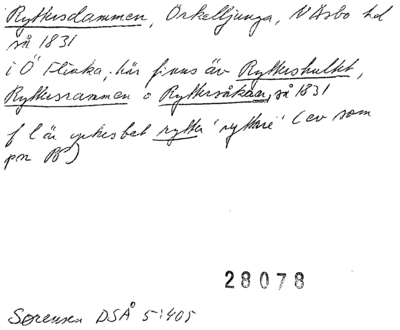 Ryttersdammen, Örkelljunga, N Åsbo hd
så 1831
i Ö Flinka; här finns äv Ryttershultet,
Ryttersrammen o Ryttersåkern, så 1831
f l är yrkesbet rytter 'ryttare' (ev som
pn B²)
28078
Sørensen DSÅ 5:405